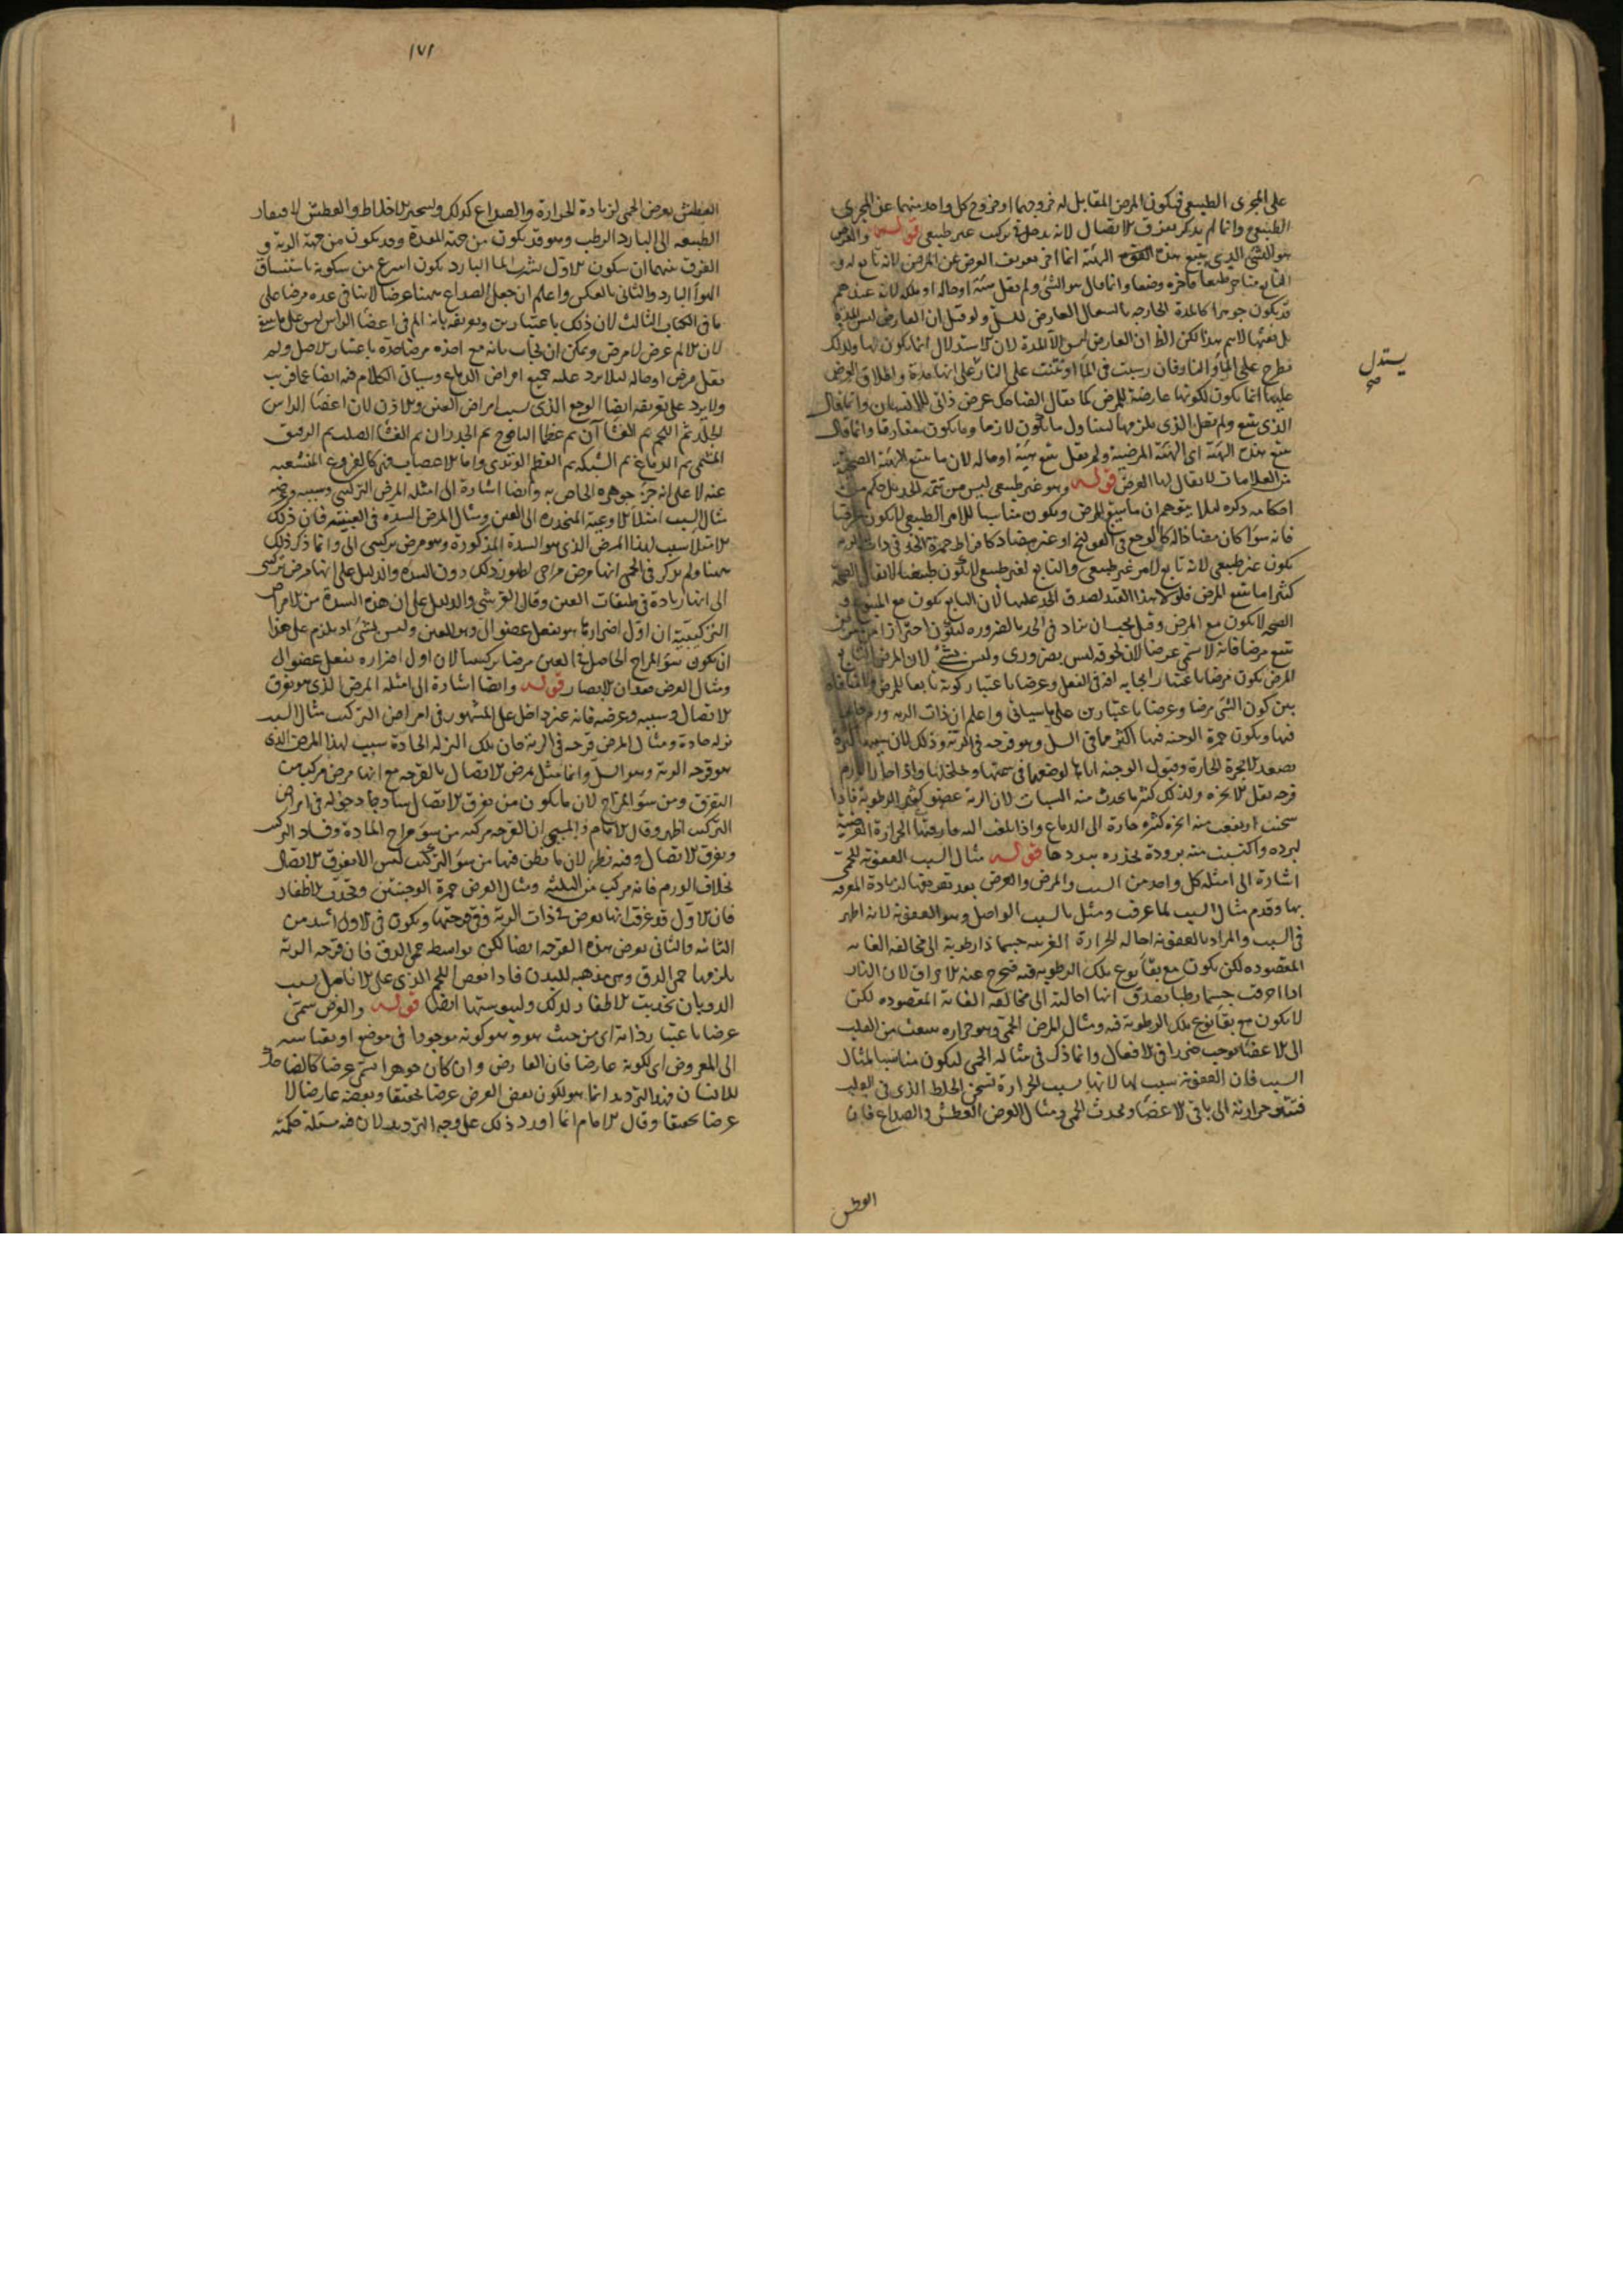 على المجرى الطبيعى فيكون المرض المقابل له خروجهما او خروج كل واحد منهما عن المجرى
الطبيعى وانما لم يذكر تفرق الاتصال لانه يدخل فى تركيب غير طبيعى قوله والعرض
هو الشئ الذى يتبع هذه الهيئة انما اخر تعريف العرض عن المرض لانه تابع له و
التابع متاخر طبعا فاخره وضعا وانما قال هو الشئ ولم يقل هيئة او حالة او ملكة لانه عندهم
قد يكون جوهرا كالمدة الخارجة بالسعال العارض للسل ولو قيل ان العارض ليس المدة
بل نفثها لاسم هذا لكن الظ ان العارض ليس الا المدة لان الاستدلال انما يكون بها ولذلك
يستدل
تطرح على الماء والنار فان رسبت فى الماء او نتنت على النار على انها مدة واطلاق العرض
عليها انما يكون لكونها عارضة للمرض كما يقال الضاحك عرض ذاتى للانسان وانما قال
الذى يتبع ولم يقل الذى يلزمها ليتناول ما يكون لازما وما يكون مفارقا وانما قال
يتبع هذه الهيئة اى الهيئة المرضية ولم يقل يتبع هيئة او حالة لان ما يتبع الهيئة الصحية
من العلامات لا يقال لها العرض قوله وهو غير طبيعى ليس من تتمة الحد بل حكم من
احكامه ذكره لئلا يتوهم ان ما يتبع المرض ويكون مناسبا للامر الطبيعى لا يكون عرضا
فانه سواء كان مضادا له كالوجع فى القولنج او غير مضاد كافراط حمرة الخد فى ذات الرية
يكون غير طبيعى لانه تابع لامر غير طبيعى والتابع لغير طبيعى لا يكون طبيعيا لا يقال الصحة
كثيرا ما تتبع المرض فلولا هذا القيد لصدق الحد عليها لان التابع يكون مع المتبوع و
الصحة لا يكون مع المرض وقيل يجب ان يزاد فى الحد بالضرورة ليكون احترازا عن مرض
يتبع مرضا فانه لا يسمى عرضا لان لحوقه ليس بضرورى وليس بشئ لان المرض التابع
المرض يكون مرضا باعتبار ايجابه افة فى الفعل وعرضا باعتبار كونه تابعا للمرض ولا منافاة
بين كون الشئ مرضا وعرضا باعتبارين على ما سياتى واعلم ان ذات الرية ورم حار
فيها ويكون حمرة الوجنة فيها اكثر مما فى السل وهو قرحة فى الرية وذلك لان سببها
تصعد الابخرة الحارة وقبول الوجنة اياها لوضعها فى سمتها وتخلخلها واذا صار الورم
قرحة تقل الابخرة ولذلك كثيرا ما يحدث منه السبات لان الرية عضو كثير الرطوبة فاذا
سخنت ارتفعت منه ابخرة كثيرة حارة الى الدماغ واذا بلغت اليه فارقتها الحرارة العرضية
لبرده واكتسبت منه برودة تخدره ببردها قوله مثال السبب العفونة للحمى
اشارة الى امثلة كل واحد من السبب والمرض والعرض بعد تعريفها لزيادة المعرفة
بها وقدم مثال السبب لما عرفت ومثل بالسبب الواصل وهو العفونة لانه اظهر
فى السبب والمراد بالعفونة احالة الحرارة الغريبة جسما ذا رطوبة الى مخالفة الغاية
المقصودة لكن يكون مع بقاء نوع تلك الرطوبة فيه فيخرج عنه الاحراق لان النار
اذا احرقت جسما رطبا يصدق انها احالته الى مخالفة الغاية المقصودة لكن
لا يكون مع بقاء نوع تلك الرطوبة فيه ومثال المرض الحمى وهو حرارة تنبعث من القلب
الى الاعضاء توجب ضررا فى الافعال وانما ذكر فى مثاله الحمى ليكون مناسبا لمثال
السبب فان العفونة سبب لها لانها سبب لحرارة تسخن الخلط الذى فى القلب
فتتفرق حرارته الى باقى الاعضاء ويحدث الحمى ومثال العرض العطش والصداع فان
العطش
١٧١
العطش يعرض الحمى لزيادة الحرارة والصداع كذلك ولتبخير الاخلاط والعطش لافتقار
الطبيعة الى البارد الرطب وهو قد يكون من جهة المعدة وقد يكون من جهة الرية و
الفرق بينهما ان سكون الاول بشرب الماء البارد يكون اسرع من سكونه باستنشاق
الهواء البارد والثانى بالعكس واعلم ان جعل الصداع ههنا عرضا لا ينافى عده مرضا على
ما فى الكتاب الثالث لان ذلك باعتبارين وتعريفه بانه الم فى اعضاء الراس ليس على ما ينبغى
لان الالم عرض لا مرض ويمكن ان يجاب بانه مع اخذه مرضا حده باعتبار الاصل ولم
يقل مرض او حالة لئلا يرد عليه جميع امراض الدماغ وسياتى الكلام فيه ايضا عما قريب
ولا يرد على تعريفه ايضا الوجع الذى بسبب امراض العين والاذن لان اعضاء الراس
الجلد ثم اللحم ثم الغشاآن ثم عظما اليافوخ ثم الجدران ثم الغشاء الصلب ثم الرقيق
المشيمى ثم الدماغ ثم الشبكة ثم العظم الوتدى واما الاعصاب فهى كالفروع المتشعبة
عنه لا على انه جزء جوهره الخاص به وايضا اشارة الى امثلة المرض التركيبى وسببه وعرضه
مثال السبب امتلاء الاوعية المنحدرة الى العين ومثال المرض السدة فى العنبية فان ذلك
الامتلاء سبب لهذا المرض الذى هو السدة المذكورة وهو مرض تركيبى الى وانما ذكر ذلك
ههنا ولم يذكر فى الحمى انها مرض مزاجى لظهور ذلك دون السدة والدليل على انها مرض تركيبى
الى انها زيادة فى طبقات العين وقال القرشى والدليل على ان هذه السدة من الامراض
التركيبية ان اول اضرارها هو بفعل عضو الى وهو العين وليس بشئ اذ يلزم على هذا
ان يكون سوء المزاج الحاصل فى العين مرضا تركيبيا لان اول اضراره بفعل عضو الى
ومثال العرض فقدان الابصار قوله وايضا اشارة الى امثلة المرض الذى هو تفرق
الاتصال وسببه وعرضه فانه غير داخل على المشهور فى امراض التركيب مثال السبب
نزلة حادة ومثال المرض قرحة فى الرية فان تلك النزلة الحادة سبب لهذا المرض الذى
هو قرحة الرية وهو السل وانما مثل مرض الاتصال بالقرحة مع انها مرض مركب من
التفرق ومن سوء المزاج لان ما يكون من تفرق الاتصال ساذجا دخوله فى امراض
التركيب اظهر وقال الامام والمسيحى ان القرحة مركبة من سوء مزاج المادة وفساد التركيب
وتفرق الاتصال وفيه نظر لان ما يظن فيها من سوء التركيب ليس الا تفرق الاتصال
بخلاف الورم فانه مركب من الثلثة ومثال العرض حمرة الوجنتين وتحدب الاظفار
فان الاول قد عرفت انها تعرض فى ذات الرية وفى قرحتها ويكون فى الاول اشد من
الثانية والثانى يعرض هذه القرحة ايضا لكن بواسطة حمى الدق فان قرحة الرية
يلزمها حمى الدق وهى مذهبة للبدن فاذا نقص اللحم الذى على الانامل بسبب
الذوبان تحدبت الاظفار لذلك وليبوستها ايضا قوله والعرض يسمى
عرضا باعتبار ذاته اى من حيث هو وهو كونه موجودا فى موضوع او بقياسه
الى المعروض اى لكونه عارضا فان العارض وان كان جوهرا يسمى عرضا كالضاحك
للانسان فهذا الترديد انما هو لكون بعض العرض عرضا تحقيقا وبعضه عارضا لا
عرضا تحقيقا وقال الامام انما اورد ذلك على وجه الترديد لان فيه مسئلة حكمية